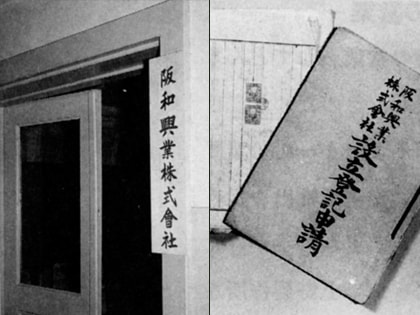 阪和興業株式會社
阪和興業
株式會社設立登記申請